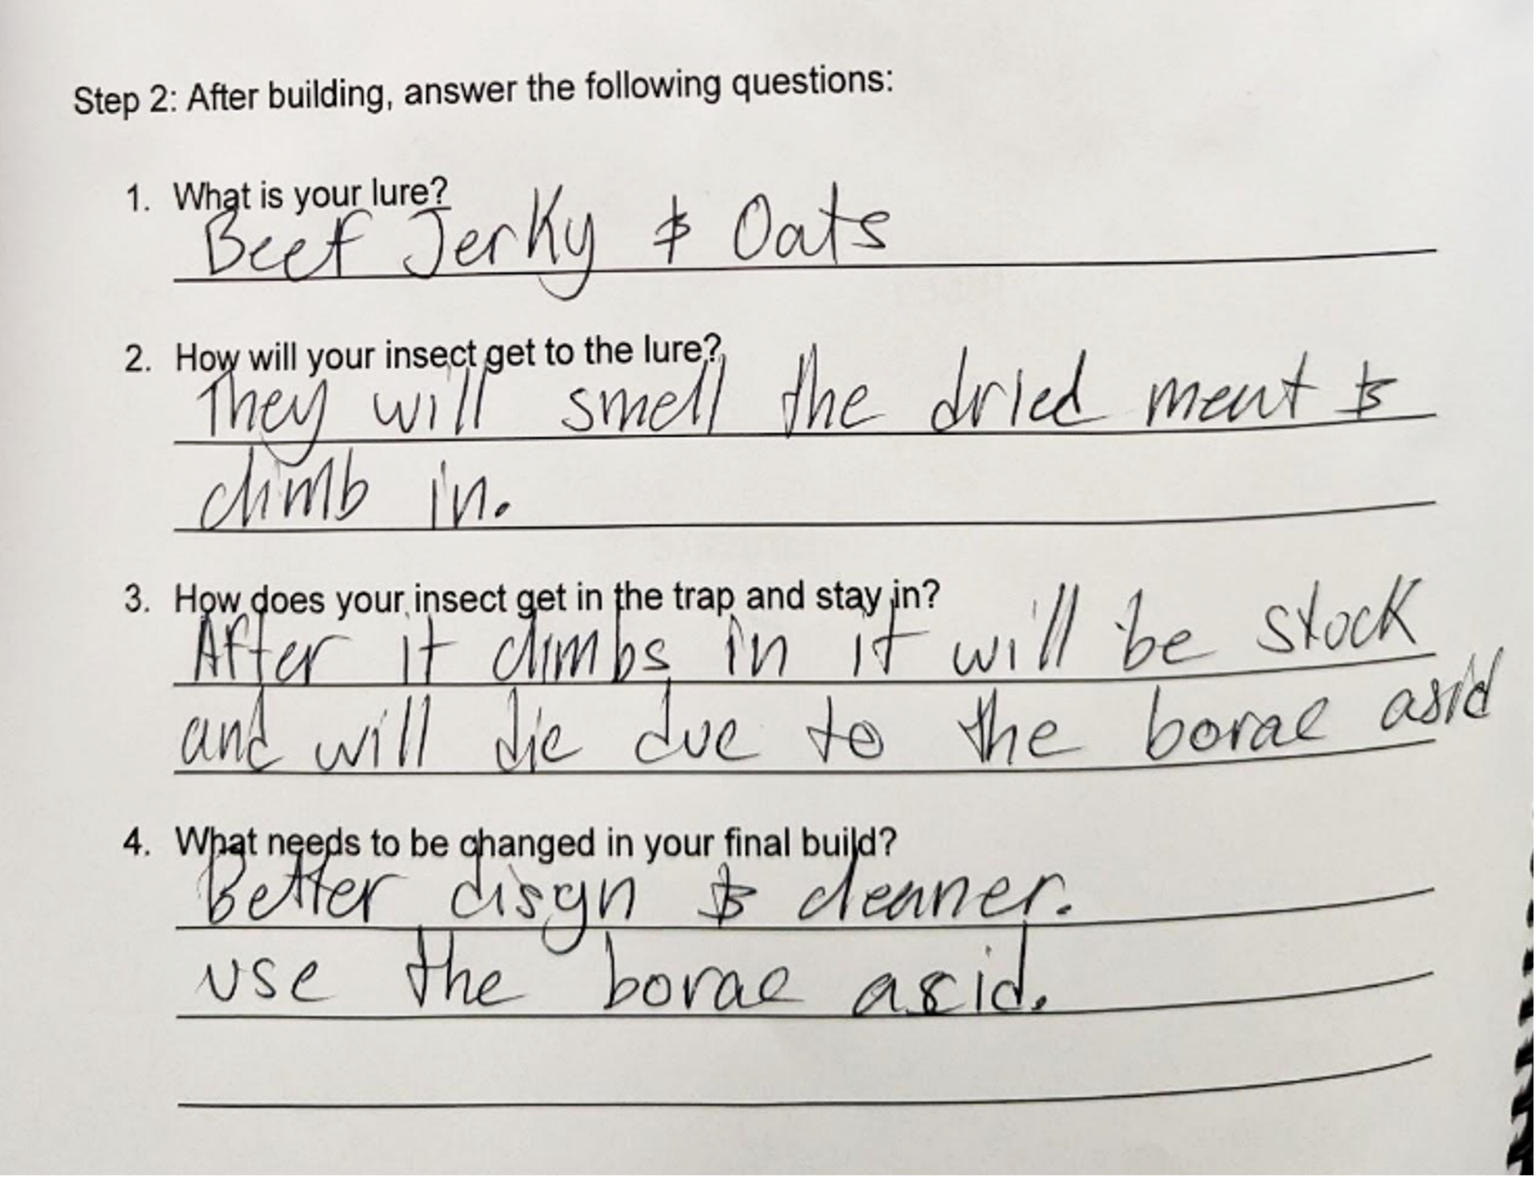 Step 2: After building, answer the following questions:
1. What is your lure?
Beef Jerky & Oats
2. How will your insect get to the lure?
They will smell the dried meat &
climb in.
3. How does your insect get in the trap and stay in?
After it climbs in it will be stock
and will die due to the borac asid
4. What needs to be changed in your final build?
Better disgn & cleaner.
use the borac asid.